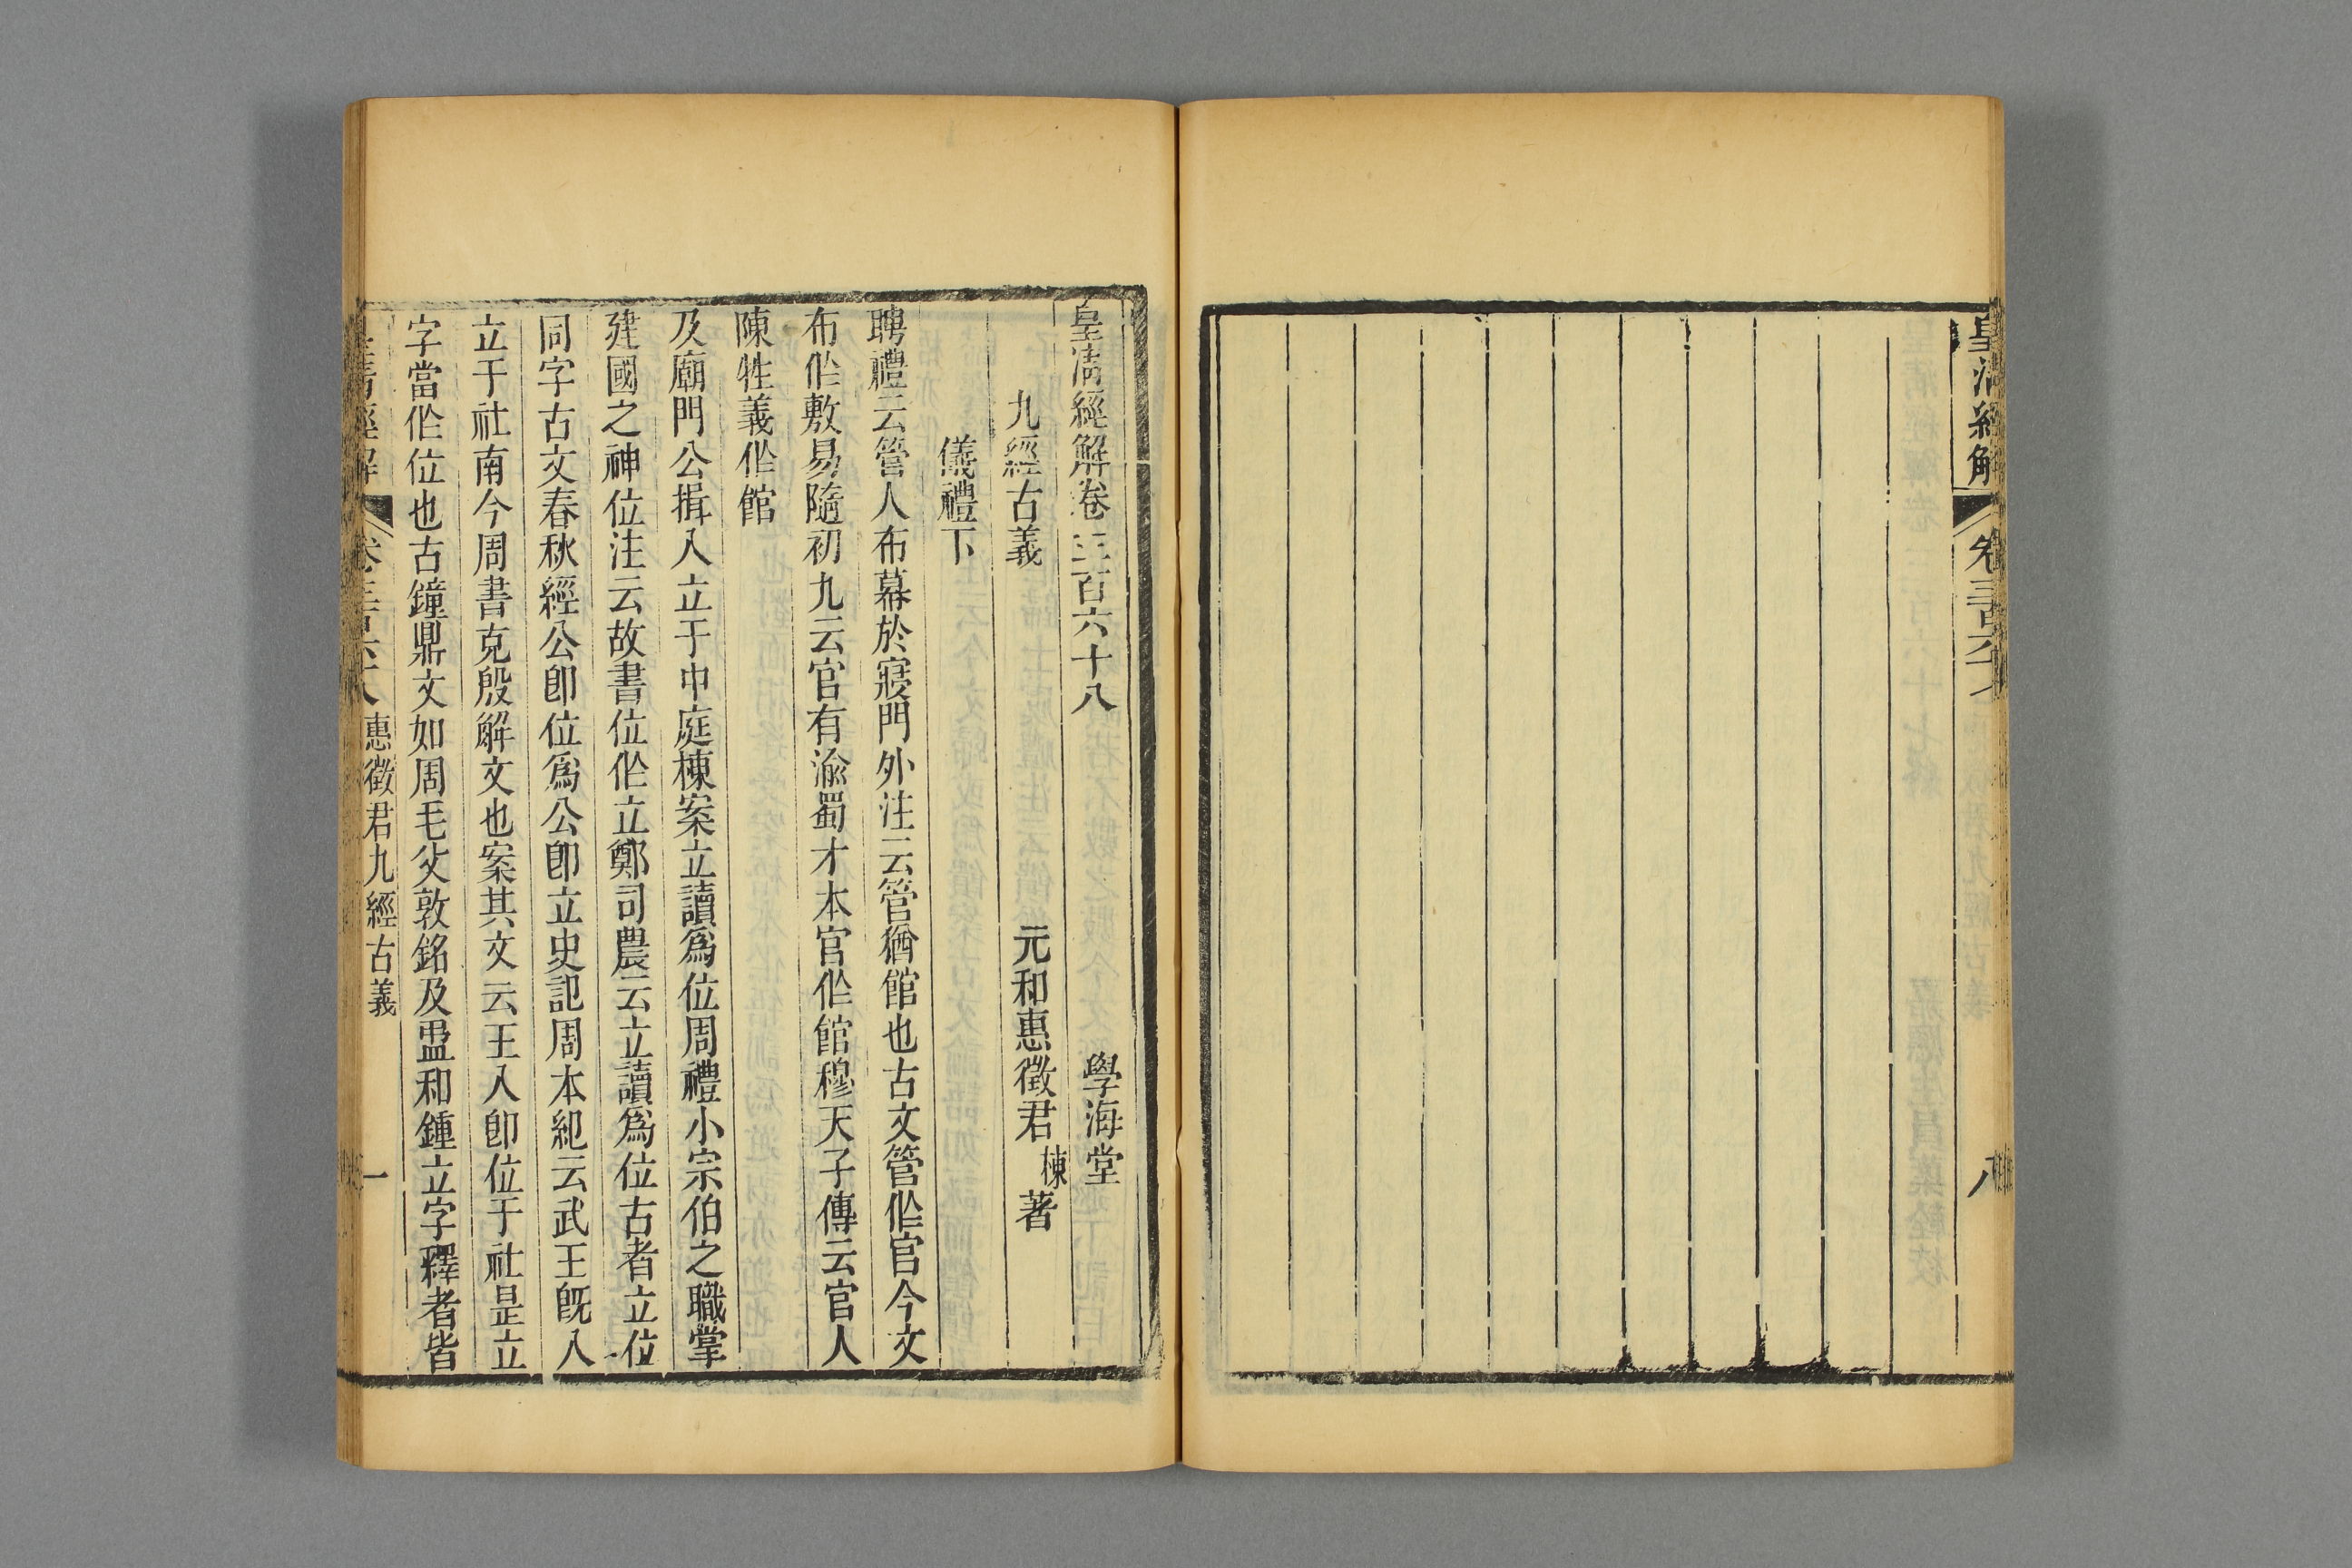 皇清經解
卷三百六十七
八
皇清經解卷三百六十八
學海堂
九經古義
元和惠徵君棟著
儀禮下
聘禮云管人布幕於寢門外注云管猶館也古文管作官今文
布作敷易隨初九云官有渝蜀才本官作館穆天子傳云官人
陳牲義作館
及廟門公揖入立于中庭棟案立讀爲位周禮小宗伯之職掌
建國之神位注云故書位作立鄭司農云立讀爲位古者立位
同字古文春秋經公卽位爲公卽立史記周本紀云武王旣入
立于社南今周書克殷解文也案其文云王入卽位于社是立
字當作位也古鐘鼎文如周毛父敦銘及盄和鍾立字釋者皆
皇清經解
卷三百六十八
惠徵君九經古義
一